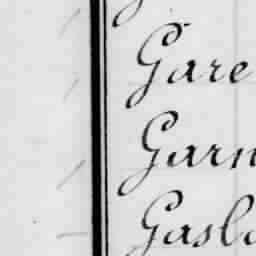 Gare
Garn
Gasla